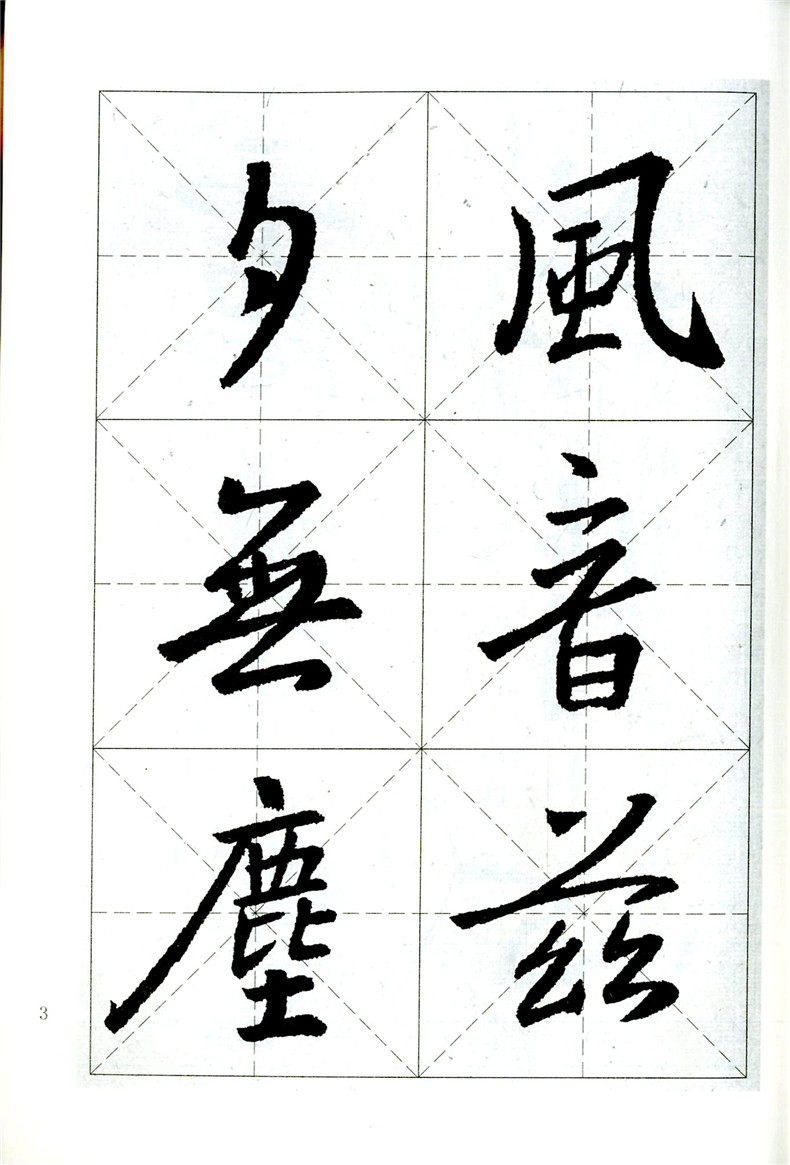 風音茲
夕無塵
3